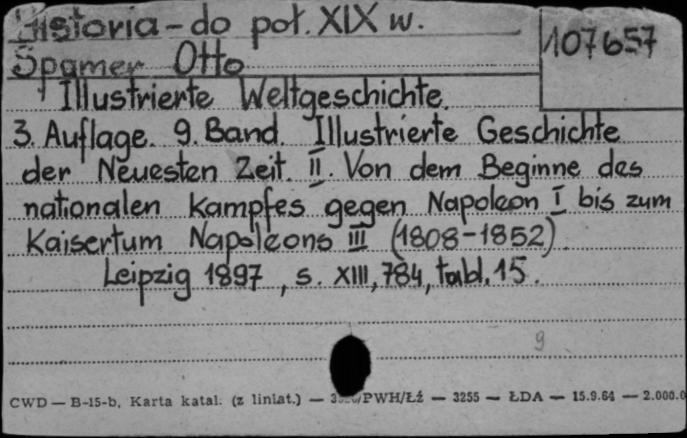 Historia - do poł. XIX w.
107657
Spamer Otto
Illustrierte Weltgeschichte.
3. Auflage. 9. Band. Illustrierte Geschichte
der Neuesten Zeit. II. Von dem Beginne des
nationalen Kampfes gegen Napoleon I bis zum
Kaisertum Napoleons III (1808-1852)
Leipzig 1897, s. XIII, 784, tabl. 15.
9
CWD — B-15-b, Karta katal. (z liniat.) — /PWH/Łź — 3255 — ŁDA — 15.9.64 — 2.000.0